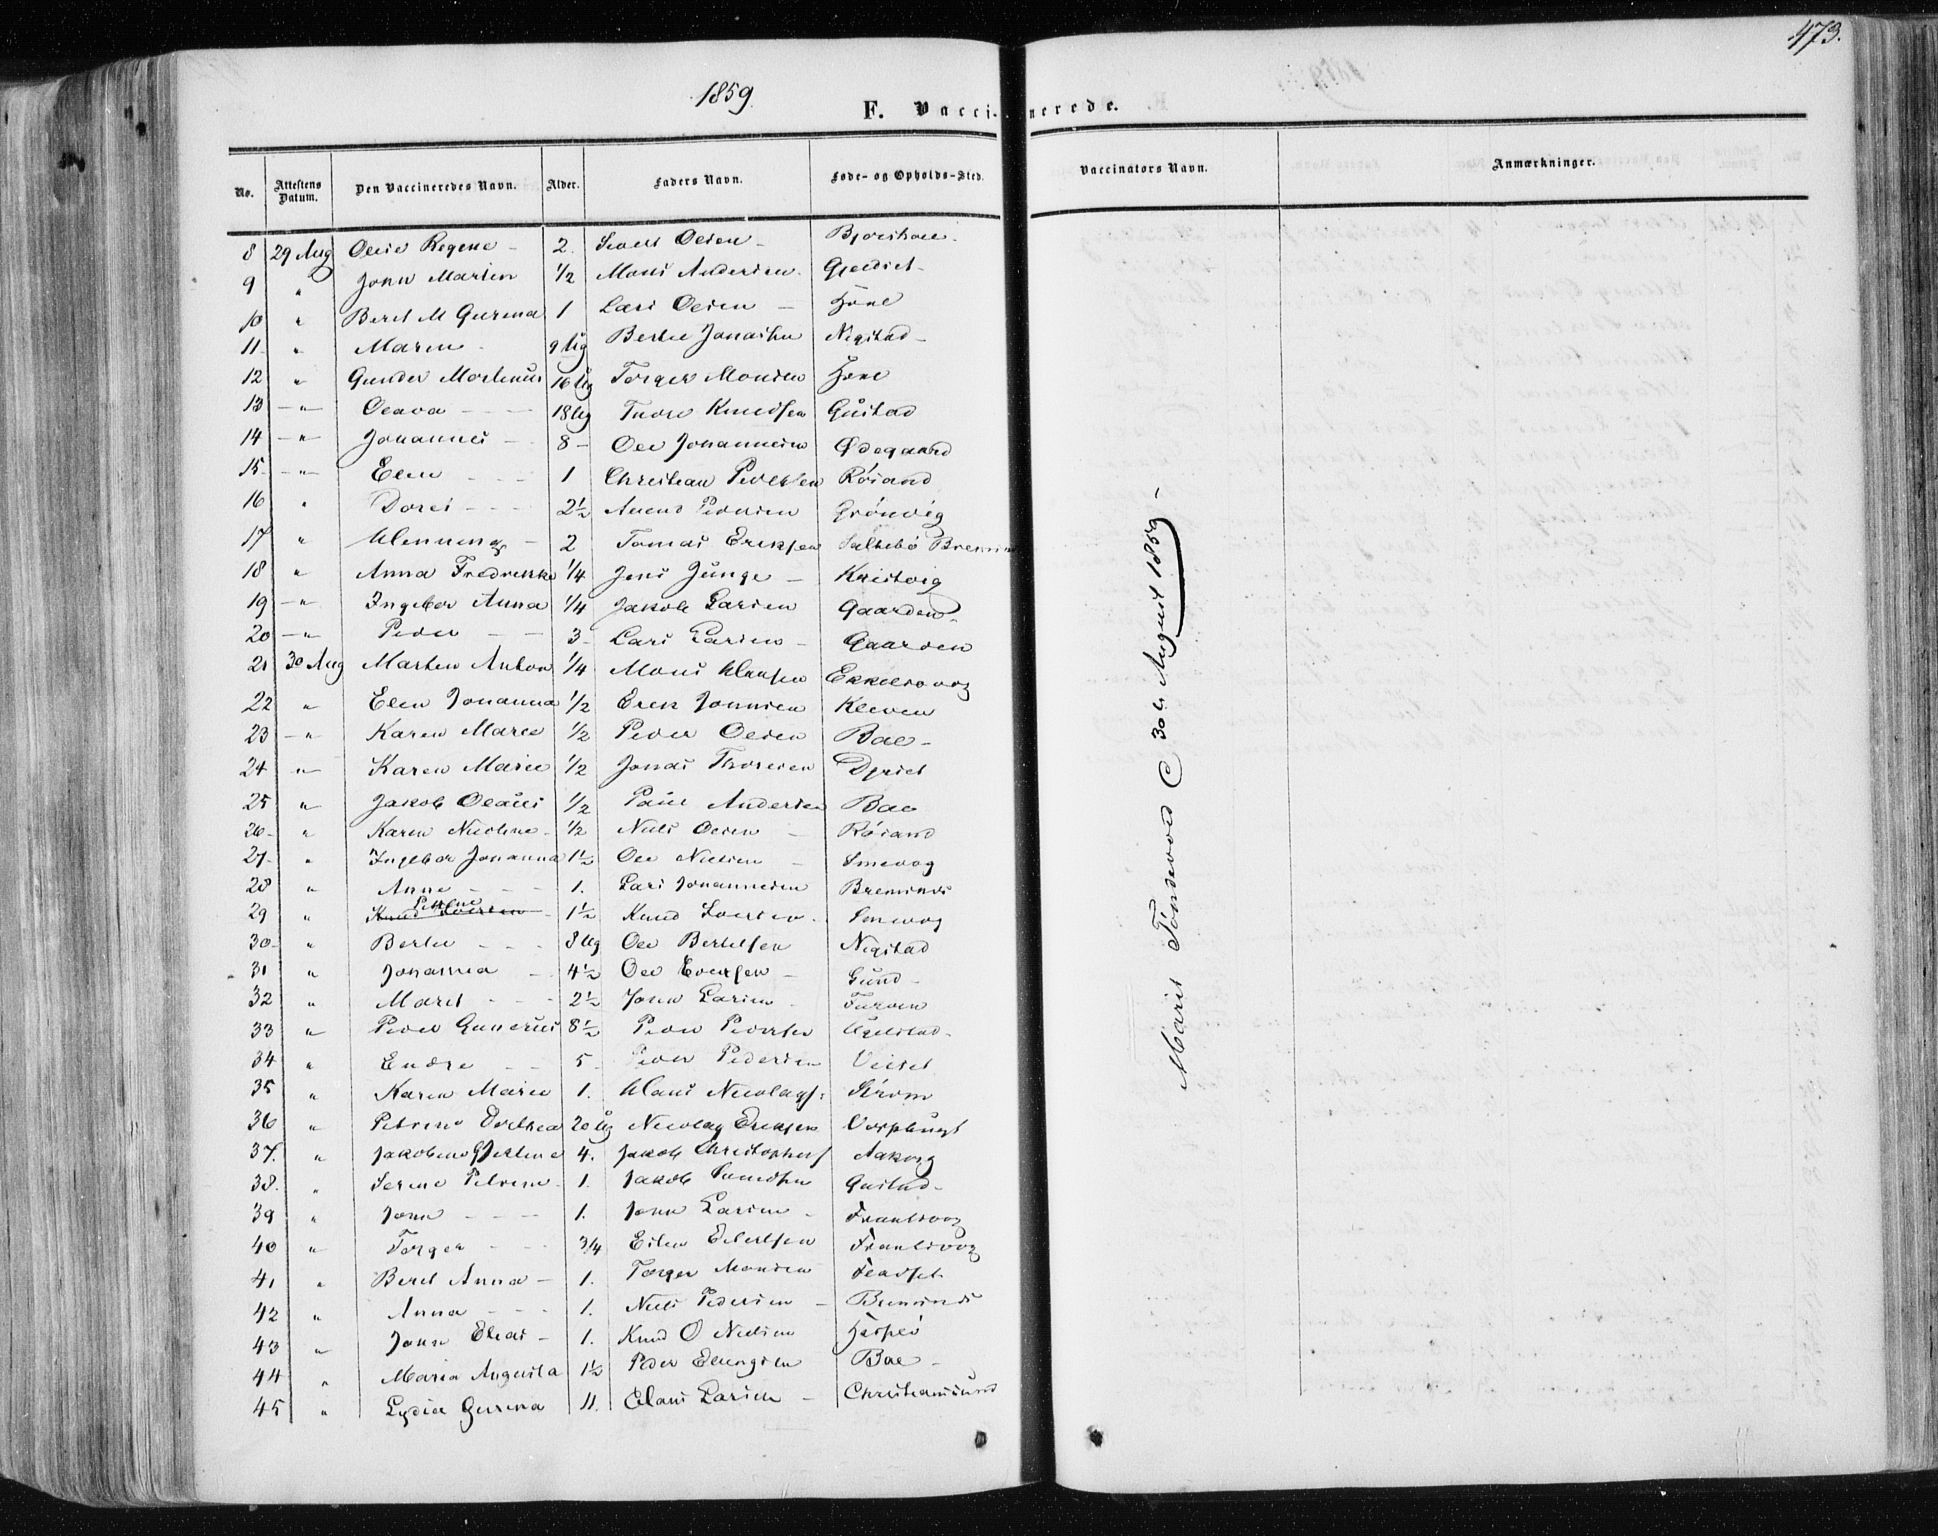 473.
1859
F. Vaccinerede.
No. Attestens Datum. Den Vaccineredes Navn. Alder. Faders Navn. Føde- og Opholds-Sted. Vaccinators Navn. Anmærkninger.
8 29 Aug Olise Regene - 2. Sivert Olsen -
9 " John Martin 1/2 Mons Andersen
10 " Beret M Gurina 1 Lars Olsen - Hónl
11 " Maren - 9 Ug Bertel Jonassen Negstad -
12 " Gunder Martenus 16 Ug Torger Monsen Hónl
13 - " Olava - - - 18 Ug Thore Knudsen Gustad
14 - " Johannes - 8 - Ole Johannesen Ødegaard
15 - " Elen - - - 1 Christian Pedersen Røsand
16 " Dorei - - - 2½ Amund Pedersen Grönvig
17 " Henning - 2 Tomas Eriksen
18 " Anna Fredrikke 1/4 Jens Junge - Kristvig
19 - " Ingebor Anna 1/4 Jakob Larsen Gaarden -
20 - " Peder - - 3 - Lars Larsen - Gaarden
21 30 Aug Marten Anton 1/4 Mons Clausen Ekkelsvog
22 " Elen Johanna 1/2 Erik Johnsen Kleven
23 - " Karen Marie 1/2 Peder Olsen Bae -
24 " Karen Marie 1/2 Jonas Thoresen
25 " Jakob Olaus 1/2 Paul Andersen Bae
26 - " Karen Nicoline - 1/2 Niels Olsen - Røsand
27 - " Ingebor Johanna 1½ Ole Nielsen - Smevog
28 " Anne - - - 1. Lars Johannesen Bremsnes
29 " Petrine 1½ Knud Iversen - Smevog
30 - " Bertel - - - 8 Ug Ole Bertelsen Negstad
31 " Johanna - 4½ Ole Evensen - Gund -
32 " Maret - - - 2½ John Larsen -
33 " Peder Gunerius 8½ Peder Pedersen
34 " Endre - - 5 - Peder Pedersen Veiset
35 " Karen Marie 1. Claus Nicolays: Strøm
36 " Petrine Dorthea 20 Ug Nicolay Eriksen
37. " Jakobine 4. Jakob Christophers
38. " Serine Petrine - 1. Jakob Gustad -
39 " John - - - 1. John Larsen - Frantsvog
40 " Torger - - 3/4 Frantsvog
41 " Beret Anna - 1. Torger Monsen
42 " Anna - - - 1. Niels Pedersen - Bremsnes
43 " John Elias - 1. Knud O Nielsen
44 " Maria Augusta 1½ Peder Ellingsen Bae -
45 " Lydia Gurina 11. Claus Larsen - Christiansund
Marit Tønsevold 30te August 1859 -